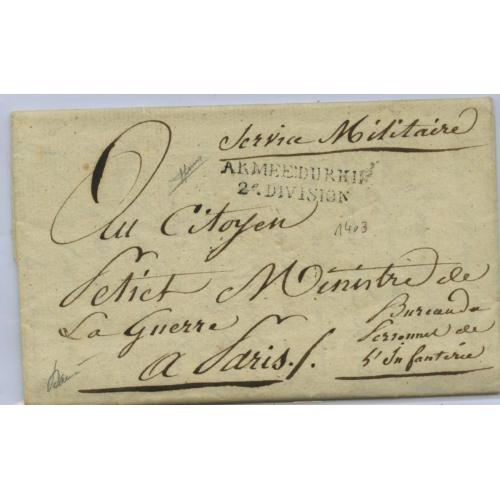 Service Militaire
ARMEE DU RHIN
2e. DIVISION
Au Citoyen
1403
Petiet Ministre de
La Guerre
Bureau du
Personnel de
l'Infanterie
a Paris./.